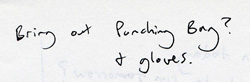 Bring out Punching Bag?
& gloves.